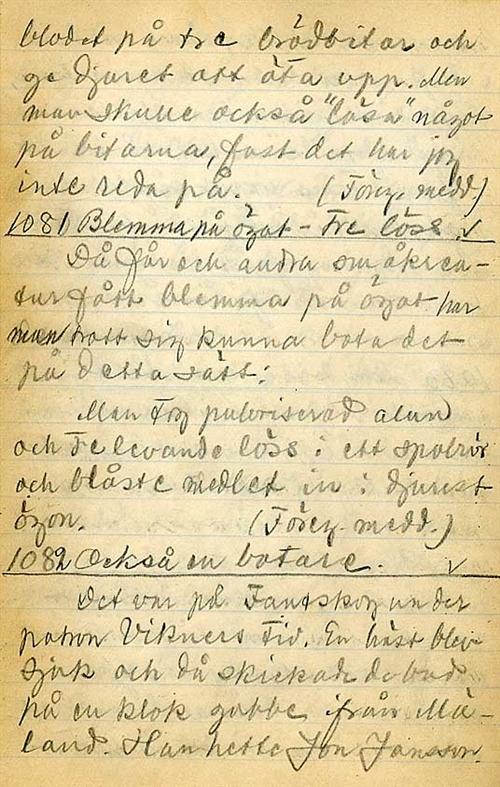 blodet på tre brödbitar och
ge djuret att äta upp. Men
man skulle också "läsa" något
på bitarna, fast det har jag
inte reda på. (Föreg. medd.)
1081 Blemma på ögat - Tre löss. ✓
Då får och andra småkrea-
tur fått blemma på ögat har
man trott sig kunna bota det
på detta sätt:
Man tog pulvriserad alun
och tre levande löss i ett spolrör
och blåste medlet in i djurets
ögon. (Föreg. medd.)
1082 Också en botare. ✓
Det var på Fantskog under
patron Vikners tid. En häst blev
sjuk och då skickade de bud
på en klok gubbe från Mä-
land. Han hette Jon Jansson.